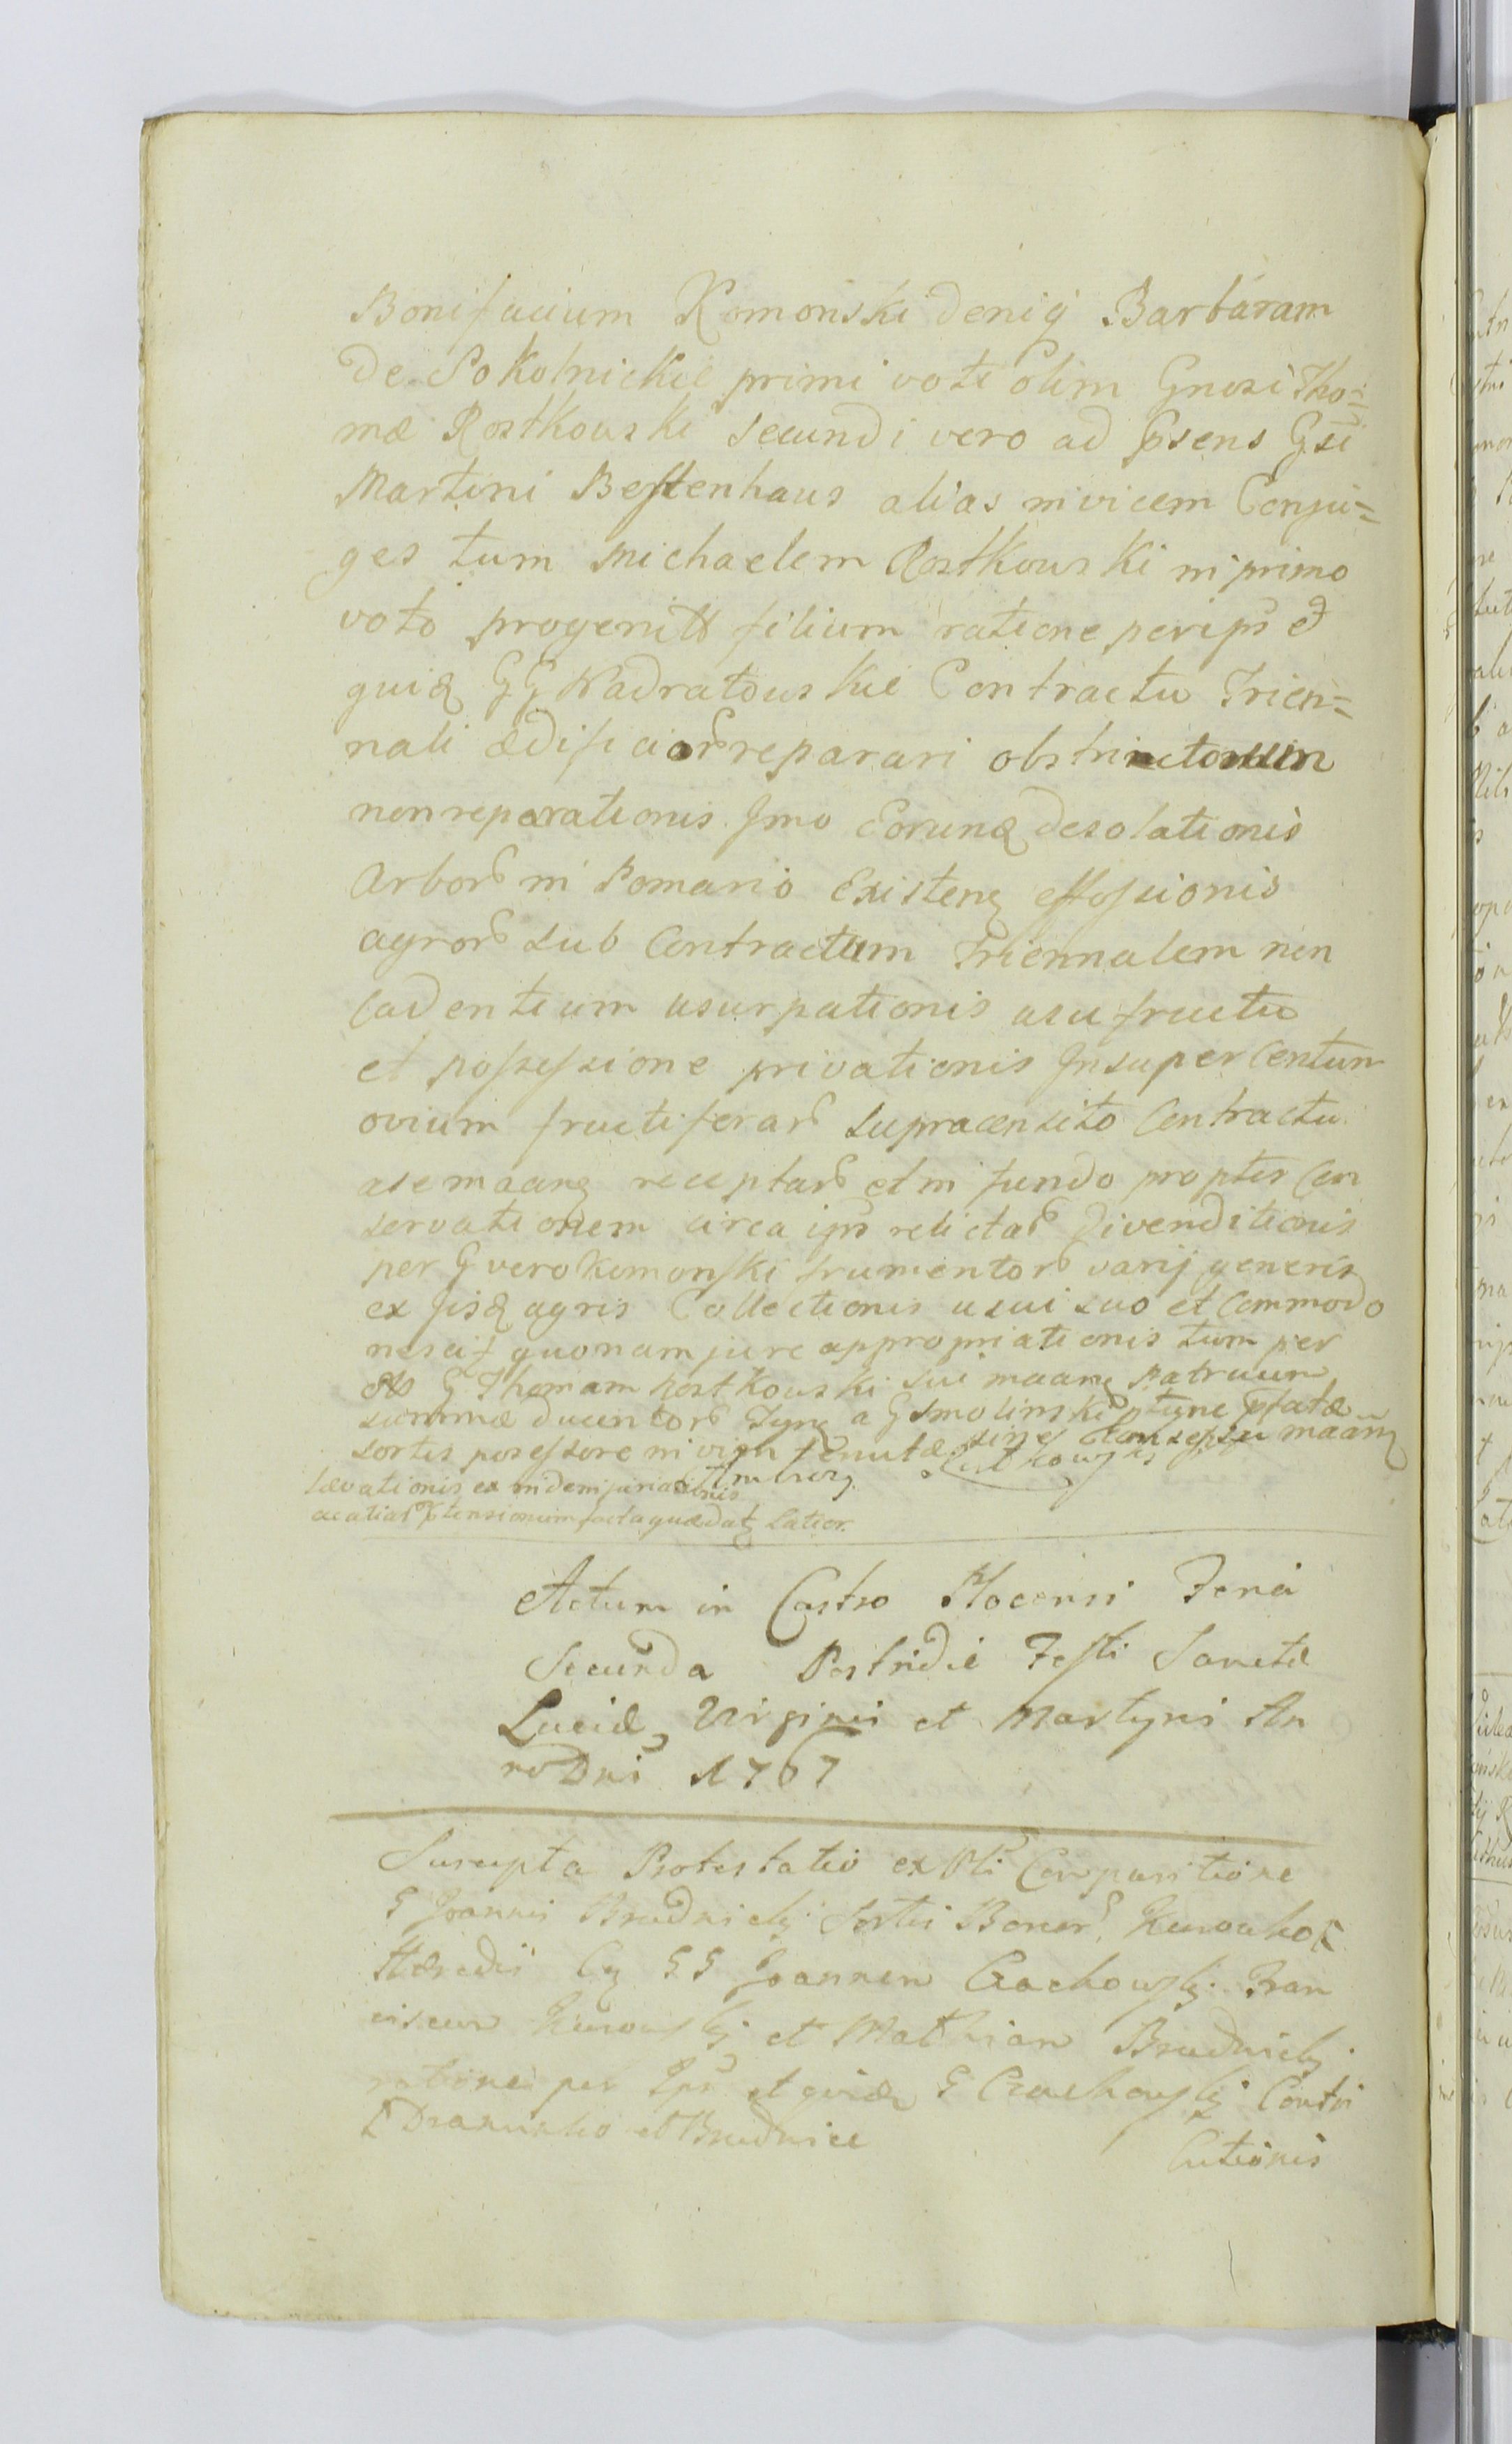 Bonifacium Komonski deniq Barbaram
de Sokolnickie primi voti olim Gnosi Tho=
mæ Rostkouski secundi vero ad psens Gsi
Martini Bestenhaus alias invicem Conju=
ges tum Michaelem Rostkouski in primo
voto progenitt filium ratione per ips et
quidq GG Nadratouskie Contractu Trien=
nali ædificior reparari obstrinctorum
non reparationis Imo Eorunq desolationis
Arbor in Pomario Existenq effossionis
agror sub Contractum Triennalem non
cadentium usurpationis usufructu
et possessione privationis Insuper Centum
ovium fructiferar supracensito Contractu
a se maanq receptar et in fundo propter Con
servationem circa ips relictar Divenditionis
per G vero Komonski frumentor varij generis
ex jisq agris Collectionis usui suo et Commodo
nescit quonam jure appropriationis tum per
G Thomam Rostkouski sui maanq patruum
summæ ducentor Tynq a G Smolinski tunc pfatæ
sortis possessore in vim tenutæ sine Consessu maanq
lævationis ex indem juriationis
ac aliar ptensionum facta quæ datq Latior.
Actum in Castro Plocensi Feria
Secunda Postridie Festi Sanctæ
Luciæ Virginis et Martyris An
no Dni 1767
Suscepta Protestatio ex Pli Comparitione
G Joannis Brudnicky Sortis Bonor
Hæredis Cq GG Joannem Czachowsky Fran
ciscum et Mathiam Brudnicky
ratione per Ips et quidq G Czachowsky Contri
et Brudnice
butionis